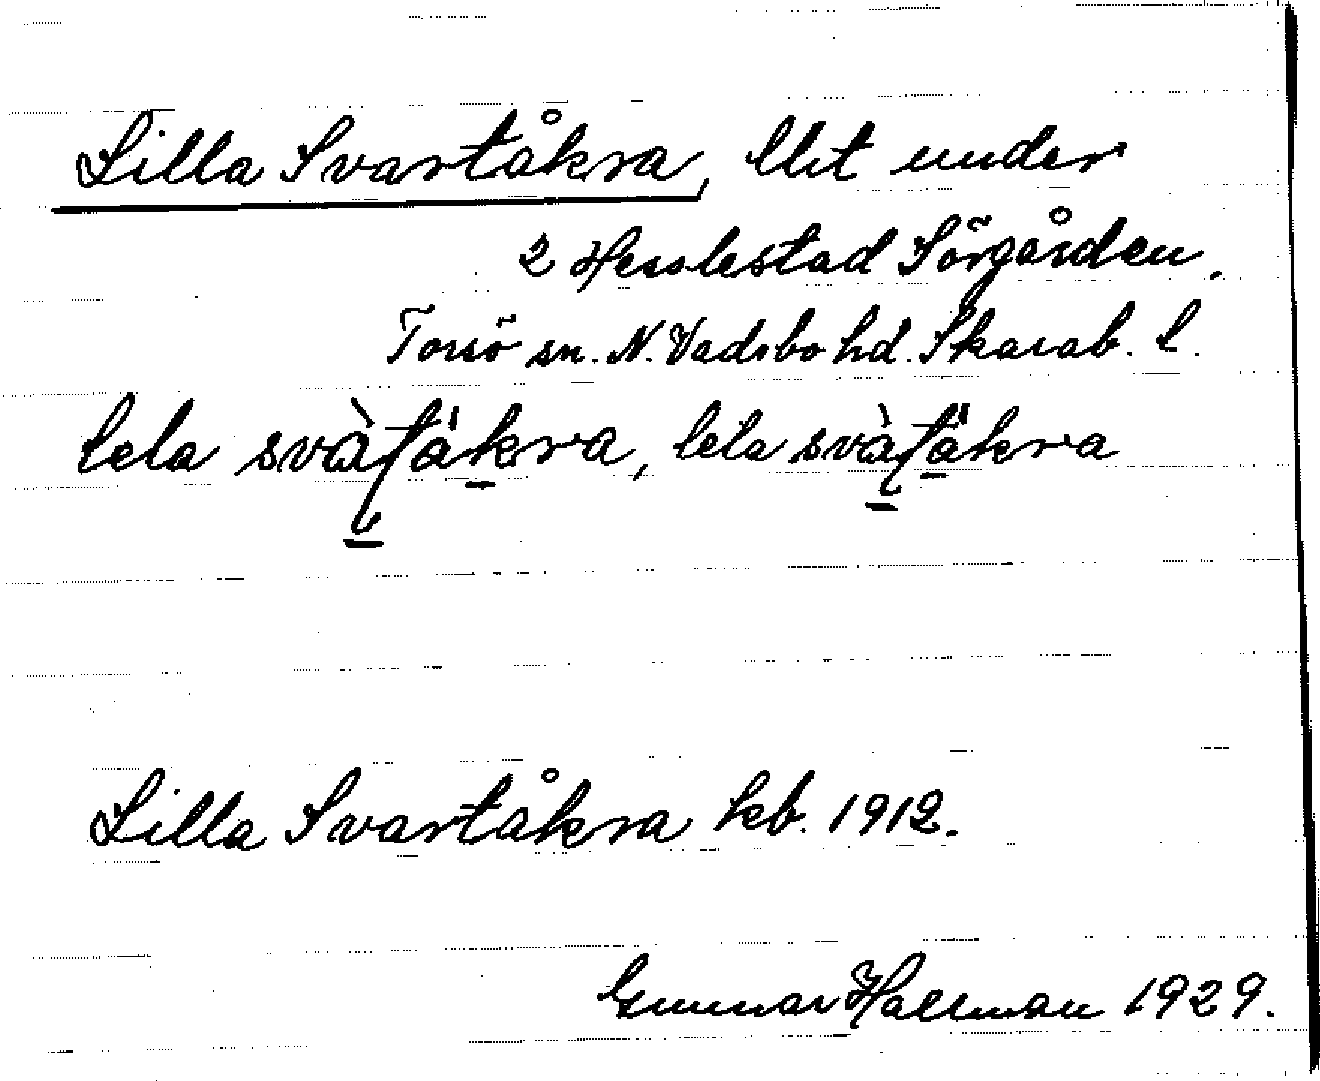 Lilla Svartåkra, lht under
2 Hesslestad Sörgården.
Torsö sn. N. Vadsbo hd. Skarab. l.
lela svàṭäkra, lela svàṭäkra
Lilla Svartåkra kb. 1912.
Gunnar Hallman 1929.